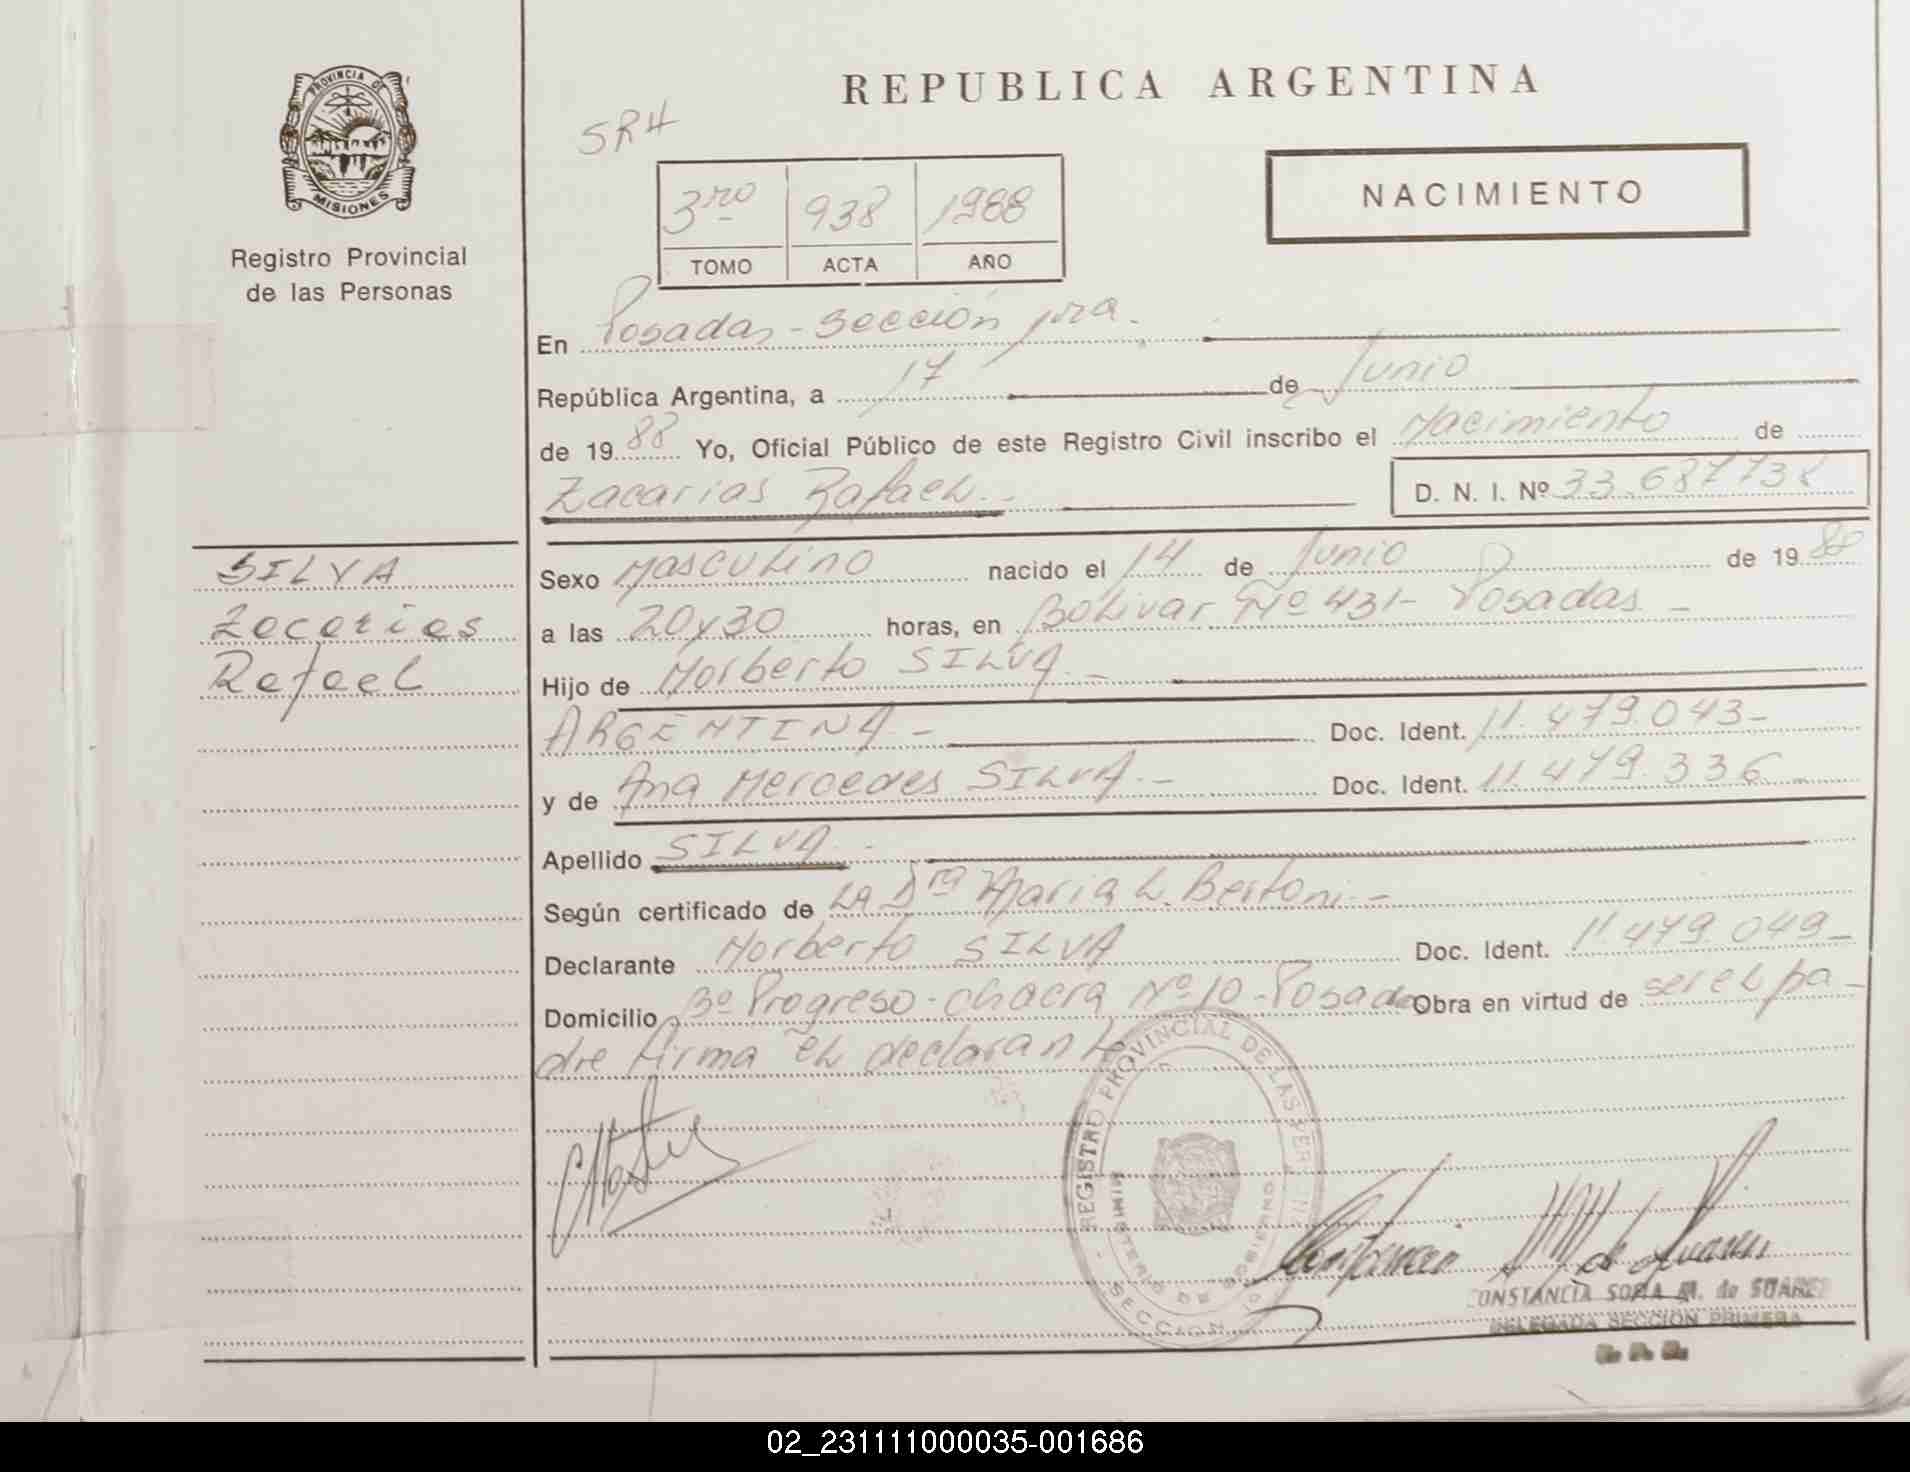 PROVINCIA DE
MISIONES
Registro Provincial
de las Personas
SILVA
Zacarias
Rafael
REPUBLICA ARGENTINA
SRH
NACIMIENTO
3ro 938 1988
TOMO ACTA AÑO
En Posadas - Sección 1ra.
República Argentina, a 17 de Junio
de 1988 Yo, Oficial Público de este Registro Civil inscribo el Nacimiento de
Zacarias Rafael.- D. N. I. Nº 33.687738
Sexo Masculino nacido el 14 de Junio de 1988
a las 20y30 horas, en Bolivar Nº 431- Posadas -
Hijo de Norberto SILVA.-
ARGENTINA - Doc. Ident. 11.479.043-
y de Ana Mercedes SILVA.- Doc. Ident. 11.479.336
Apellido SILVA.-
Según certificado de LA Dra Maria L. Bertoni.-
Declarante Norberto SILVA Doc. Ident. 11.479.049-
Domicilio Bº Progreso - chacra Nº 10 - Posadas Obra en virtud de ser el pa-
dre firma el declarante
REGISTRO PROVINCIAL DE LAS PERSONAS
MINISTERIO DE GOBIERNO
SECCION 1a
CONSTANCIA SOFIA M. de SUAREZ
DELEGADA SECCION PRIMERA
02_231111000035-001686